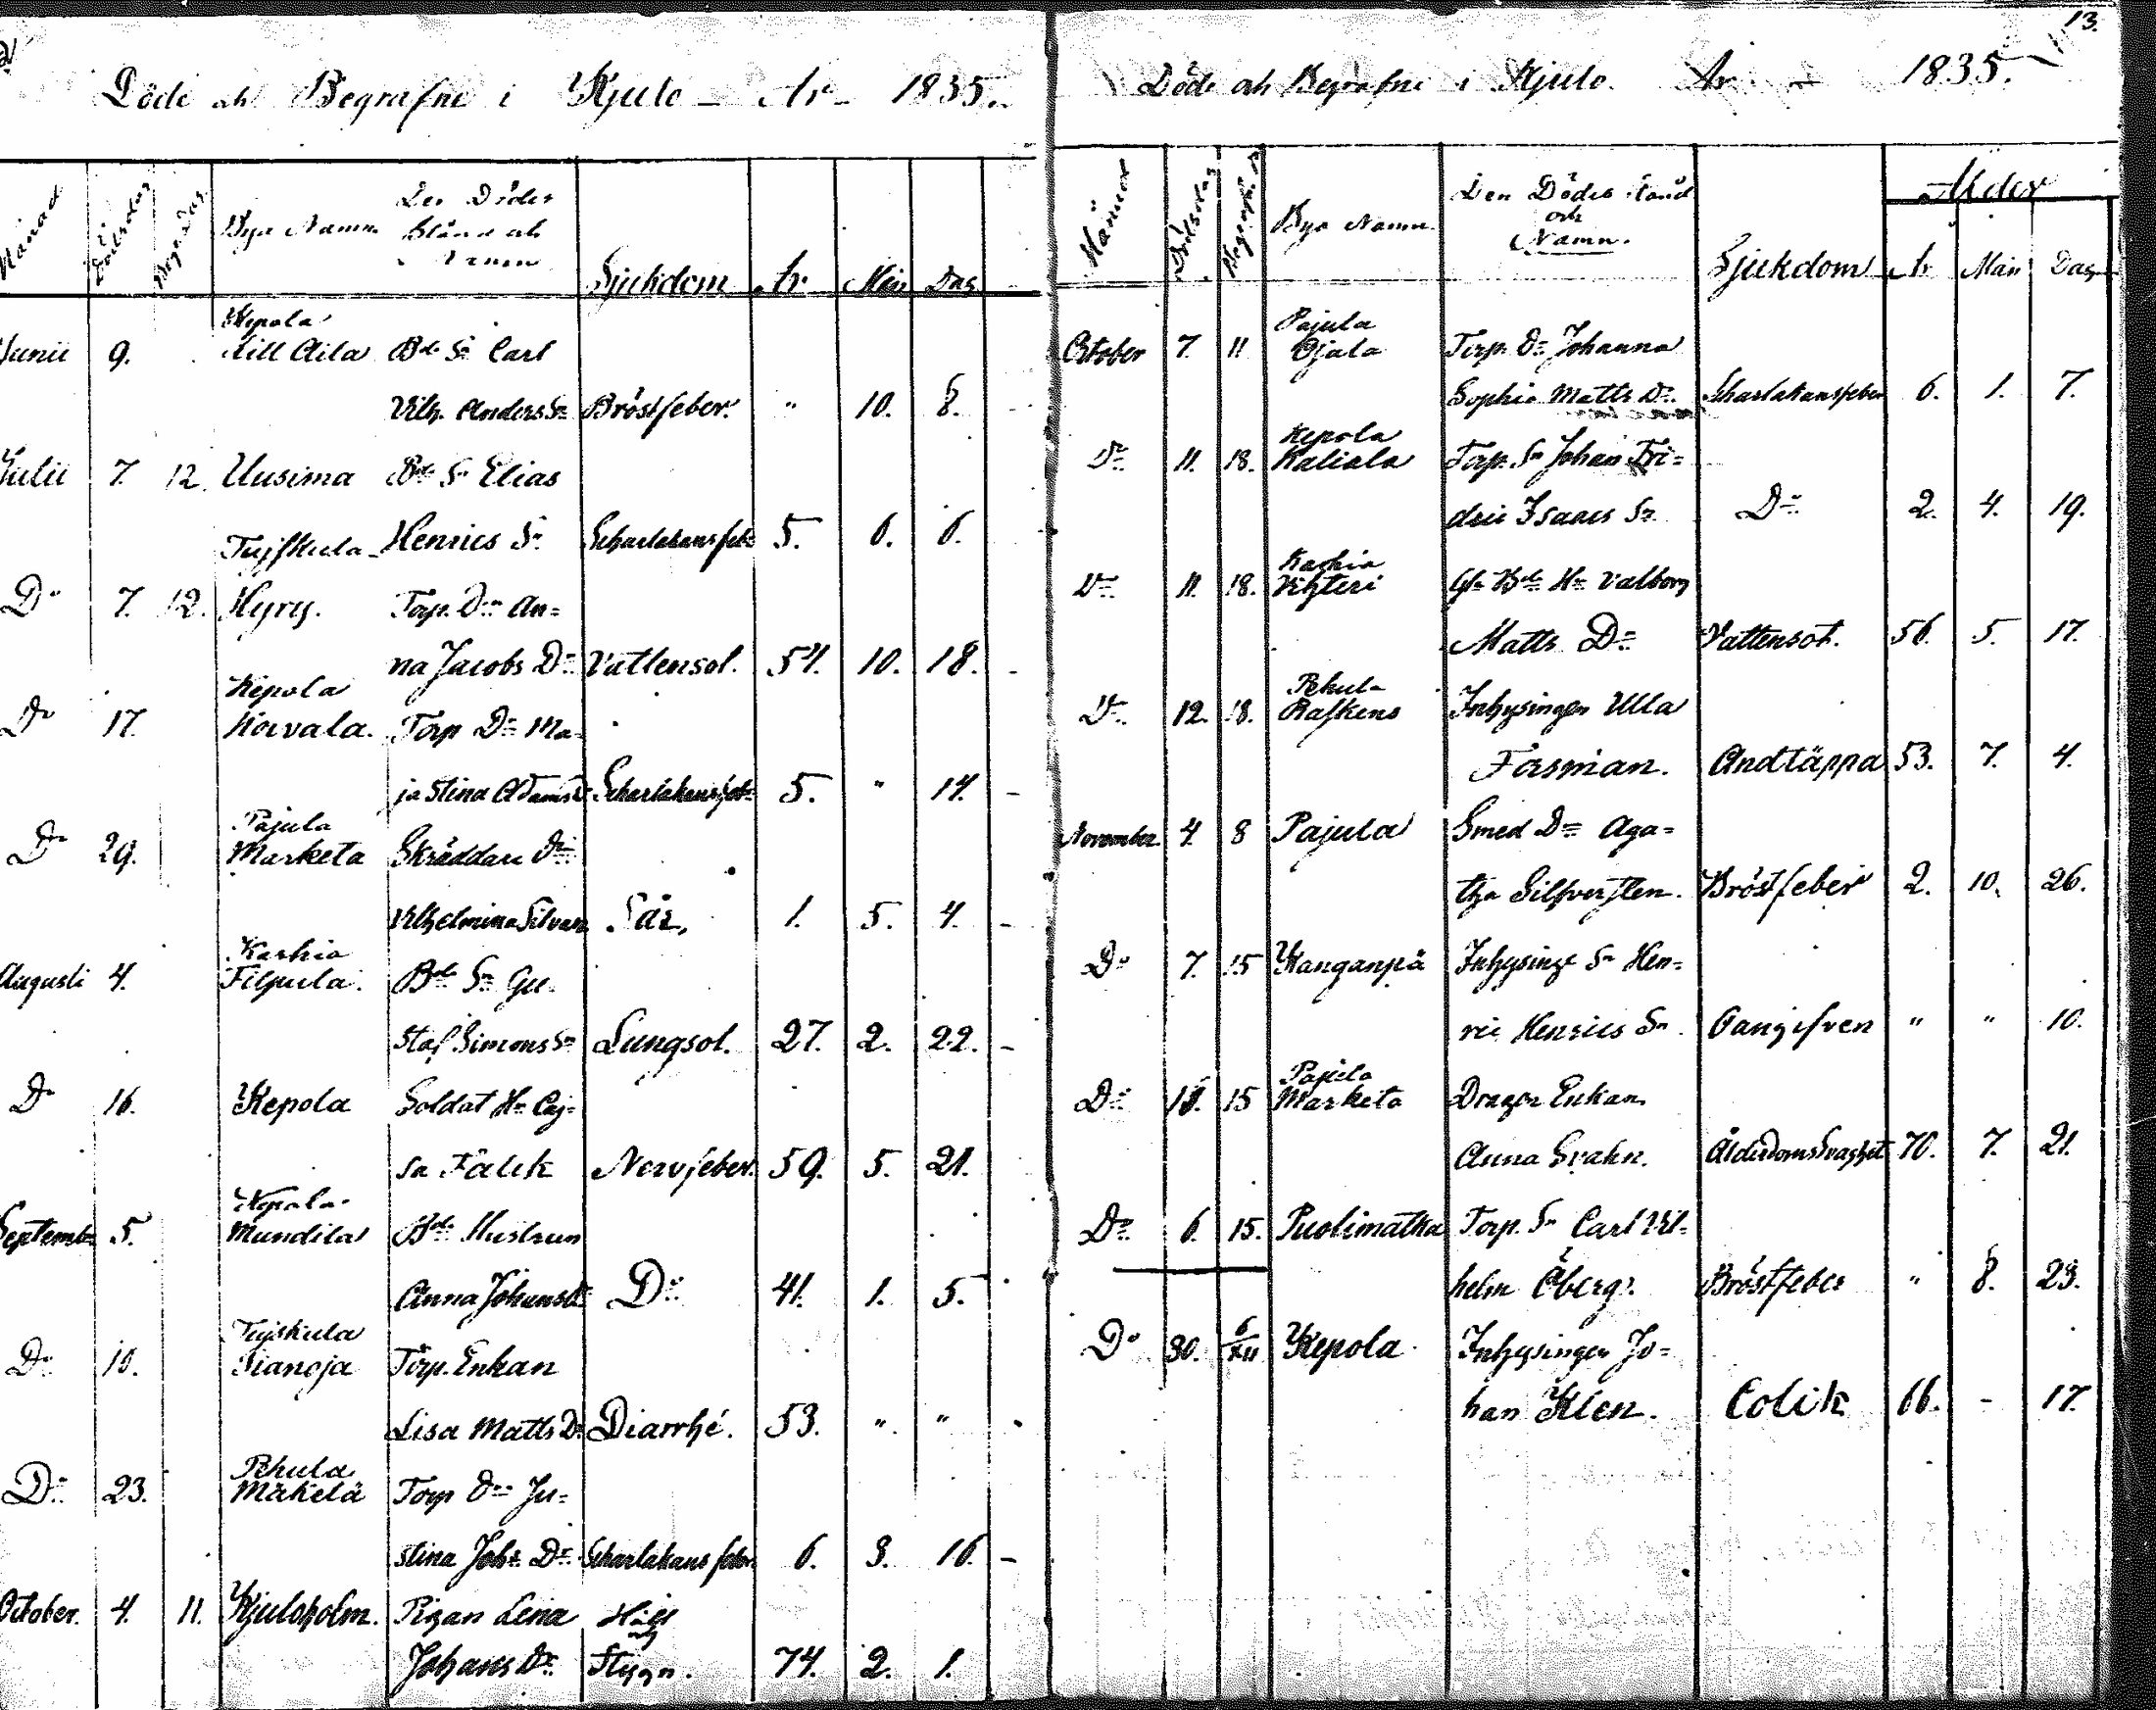 Döde och Begrafne i Kjulo - År - 1835.
Månad Dödsdag Begr. Dag. Bya Namn Den Dödes Stånd och Namn Sjukdom År Mån Dag
Kepola
Junii 9. Lill Aila Bd. Sn Carl
Vilh. Anders Sn Bröstfeber. " 10. 8.
Julii 7. 12. Uusima Bd. Sn Elias
Tujskula Henrics Sn Scharlakansfeb. 5. 6. 6.
Do 7. 12. Hyry. Torp. Dr An=
na Jacobs Dr Vattensot. 54. 10. 18.
Kepola
Do 17. Korvala. Torp Dr Ma-
ja Stina Adams D. Scharlakansfeb. 5. " 14.
Pajula
Do 29. Marketa Skräddare Dr
Vilhelmina Silvan Sår, 1. 5. 4.
Karhia
Augusti 4. Filpula. Bd. Sn Gu-
staf Simons Sn Lungsot. 27. 2. 22.
Do 16. Kepola Soldat Hu Caj=
sa Falck Nervfeber. 59. 5. 21.
Kepola
September 5. Mundila Bd. Hustrun
Anna Johans D. Do 41. 1. 5.
Tujskula
Do 10. Sianoja Torp. Enkan
Lisa Matts D. Diarrhé. 53. " "
Pehula
Do 23. Mäkelä Torp Dr Ju=
stina Joh. Dr Scharlakans feber 6. 3. 16.
October. 4. 11. Kjuloholm. Pigan Lena Håll
och
Johans Dr Stygn. 74. 2. 1.
13.
Döde och Begrafne i Kjulo. År - 1835.
Månad Dödsdag Begrafn. D. Bya Namn. Den Dödes Stånd och Namn. Sjukdom Ålder År Mån Dag
Pajula
October 7. 11 Ojala Torp. Dr Johanna
Sophia Matts Dr. Scharlakansfeber 6. 1. 7.
Kepola
Do 11. 18. Kaliala Torp. Sn Johan Fri=
dric Isaacs Sn Do 2. 4. 19.
Karhia
Do 11. 18. Vihteri Gl. Bd. Hu Valborg
Matts Dr Vattensot. 56. 5. 17.
Pehula
Do 12. 18. Raskens Inhysingen Ulla
Forsman. Andtäppa 53. 7. 4.
November. 4. 8 Pajula Smed Dr Aga=
tha Silfversten. Bröstfeber 2. 10. 26.
Do 7. 15 Kanganpä Inhysings Sn Hen=
ric Henrics Sn Oangifven " " 10.
Pajula
Do 15 Marketa Dragon Enkan
Anna Svahn. Ålderdomssvaghet 70. 7. 21.
Do 6. 15. Puolimatka Torp. Sn Carl Vil-
helm Öberg. Bröstfeber " 8. 23.
Do 30. 6/XII Kepola Inhysingen Jo=
han Klen. Colik 66. - 17.